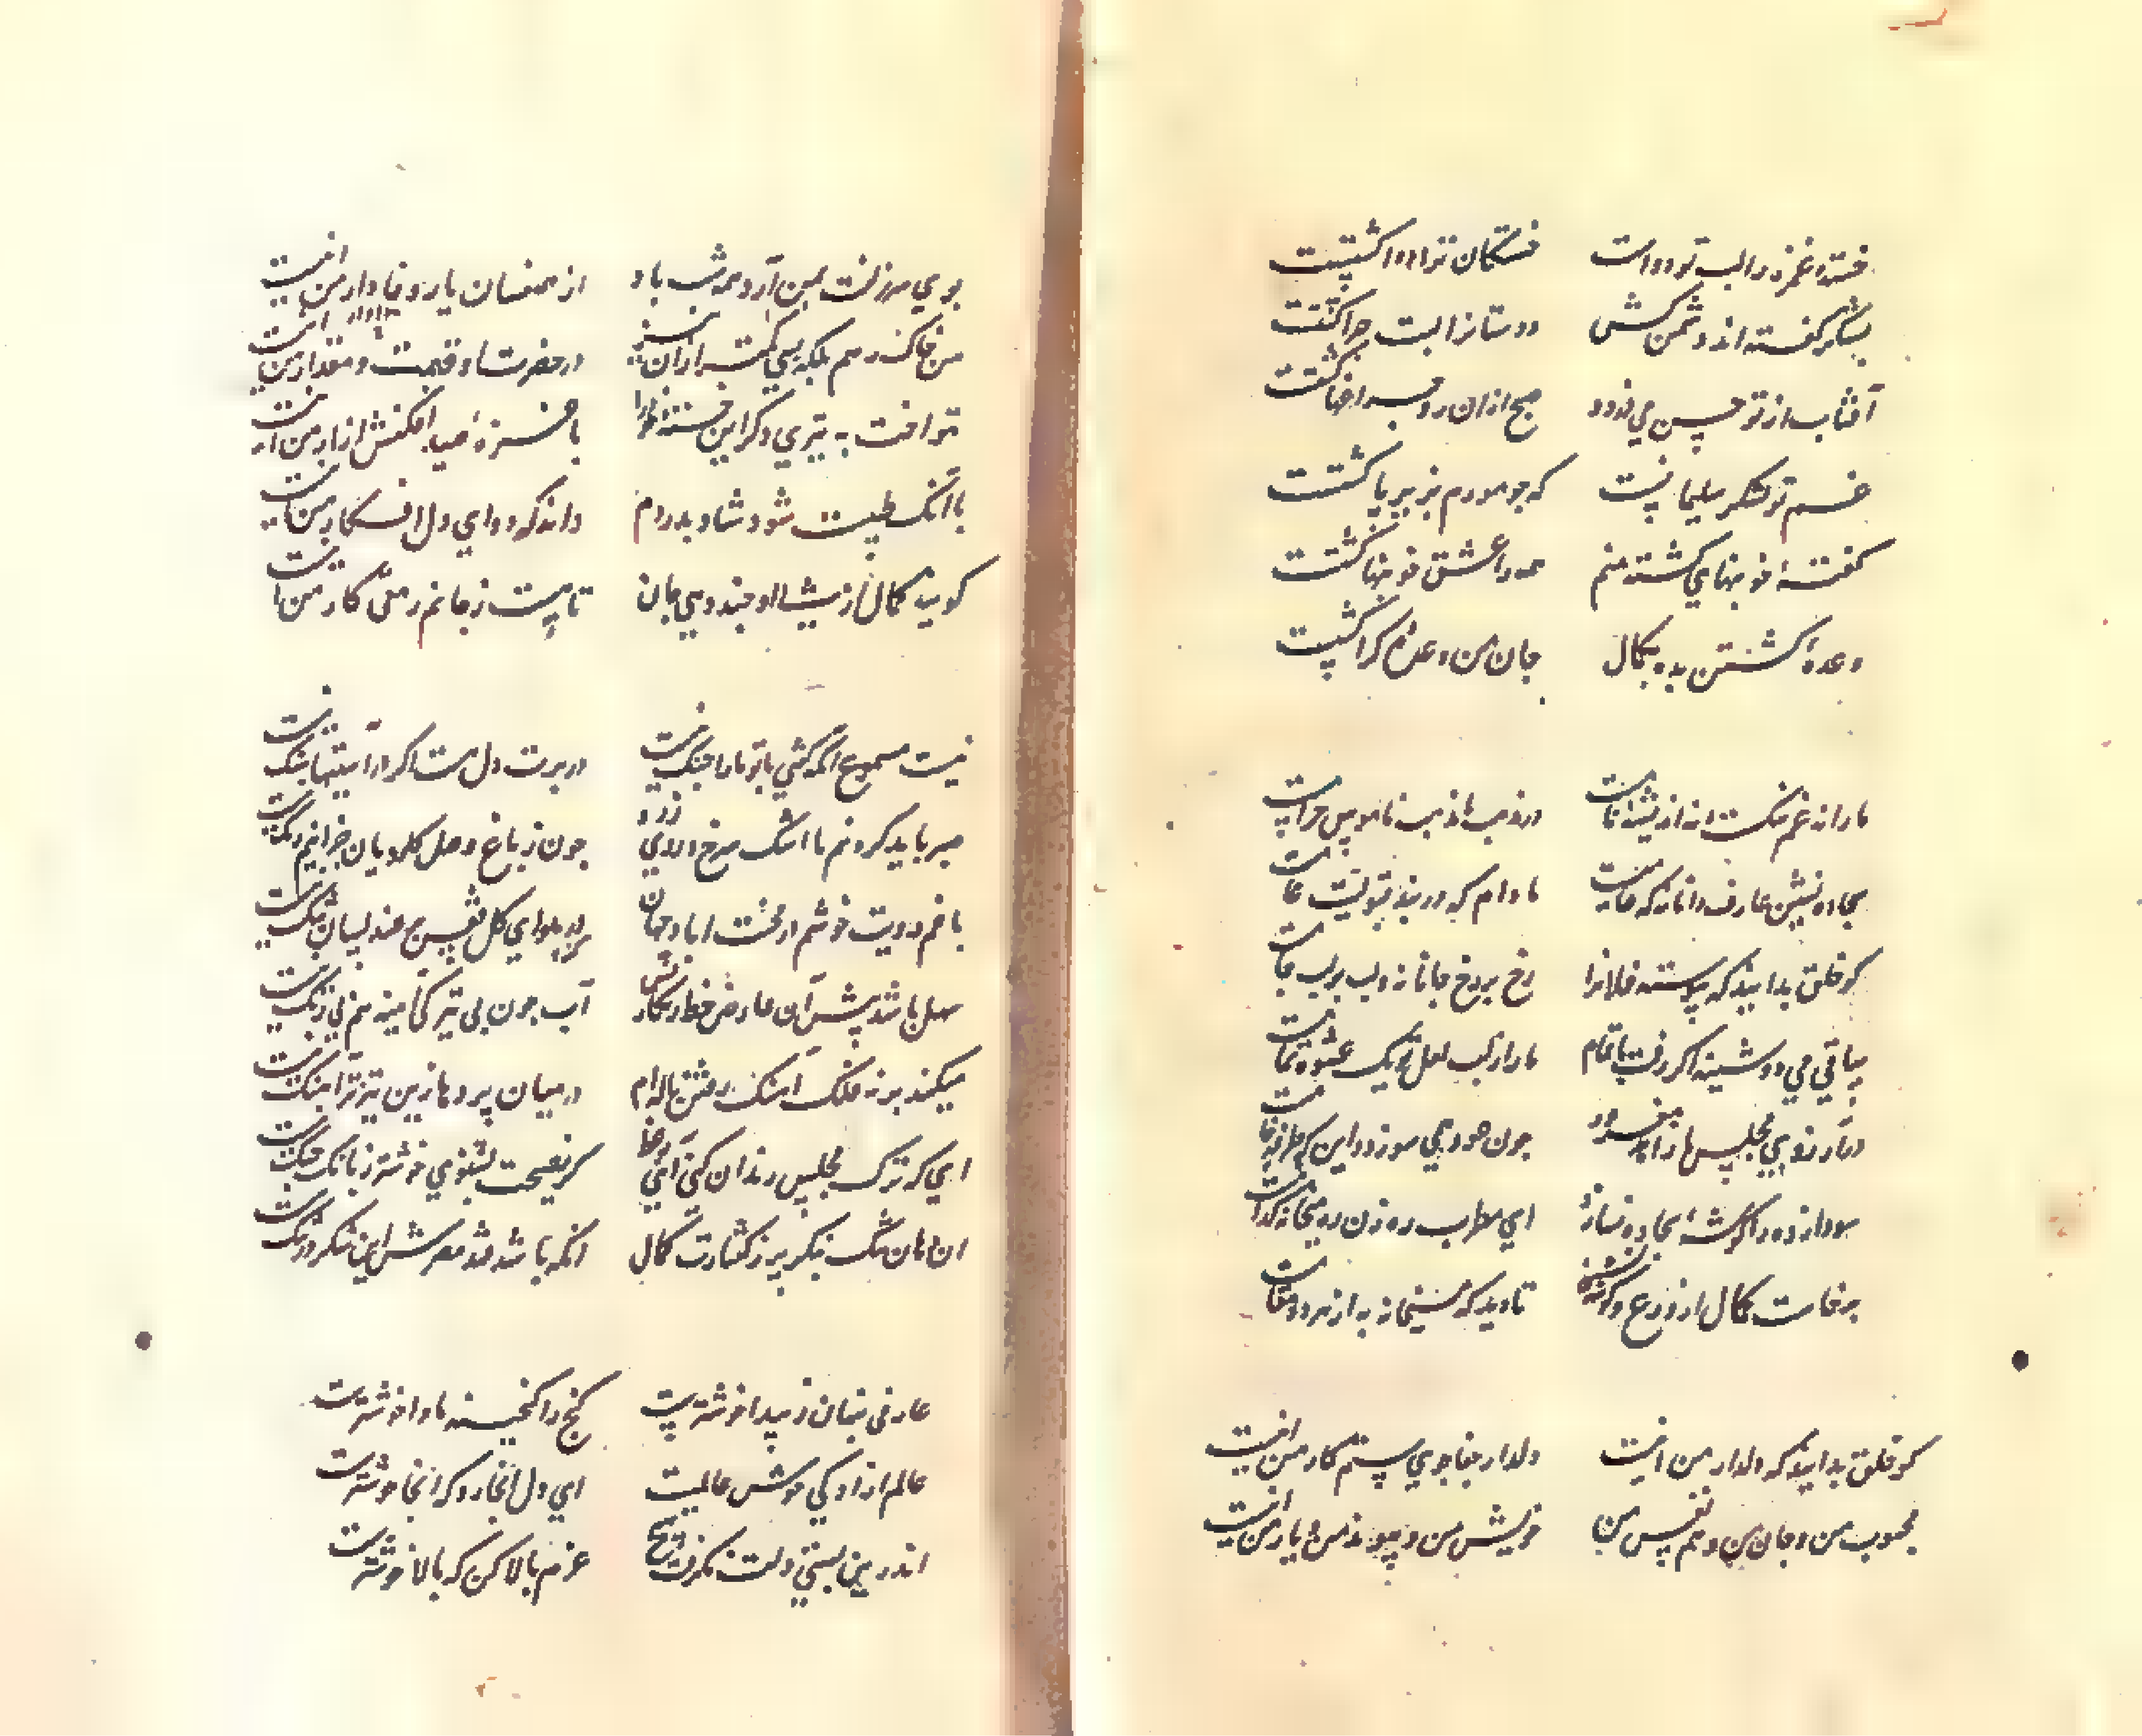 خسته غمزه را لب تو دواست خستگان ترا دوا کشتست
بشکر گفته اند دشمن کش دوستانرا لبت چرا کشتست
آفتاب از تو حسن می دزدد صبح ازان رو چراغها کشتست
غم تو لشکر سلیمانیست که چو مورم بزیر پا کشتست
گفته خونبهای کشته منم همه را عشق خونبها کشتست
وعده کشتن بده بکمال جان من وعده کراکشتست
ما را نه غم ننگ و نه اندیشه نامست در مذهب ما مذهب ناموس حرامست
سجاده نشین عارف و دانا نه که عامیست مادام که در بند قبولیت عامست
گو خلق بدانید که پیوسته فلانرا رخ بر رخ جانانه و لب بر لب جامست
باقی می دوشینه اگر رفت باتمام ما را ز لب لعل تو یک عشوه تمامست
در آرزوی مجلس ما زاهد مغرور چون عود همی سوزد و این طرفه که خامست
سودازده را گوشه سجاده نسازد ای مطرب ره زن ره میخانه کدامست
برخاست کمال از ورع و گوشه نشینی تا دید که میخانه به از هر دو مقامست
گو خلق بدانید که دلدار من اینست دلدار جفاجوی ستمکار من اینست
محبوب من و جان من و هم نفس من خویش من و پیوند من و یار من اینست
بوی سر زلفت بمن آرد همه شب باد از همنفسان یار وفادار من اینست
من خاک رهم بلکه بسی کمتر ازان نیز در حضرت او قیمت و مقدار من اینست
نتواخت به تیری دگر این خسته خود را با غمزه صیاد افکنش آزار من اینست
با آنک طبیب شود شاد بدردم داند که دوای دل افگار من اینست
گویند کمال از پی او چند دوی جان تا هست ز جانم رمقی کار من اینست
نیست مسموع آنکه گفتی با تو ما را جنگ نیست در برت دل هست اگر در آستینها سنگ نیست
صبر باید کردنم با اشک سرخ و روی زرد چون ز باغ وصل گلرویان جز اینم رنگ نیست
با غم رویت خوشم در محنت آباد جهان بر هوای گل قفس بر عندلیبان تنگ نیست
سهل باشد پیش آن عارض خط زنگار آب چون بی تیرگی آیینه هم بی زنگ نیست
میکند بر نه فلک آهنگ رفتن ناله ام در میان پرده ها زین تیزتر آهنگ نیست
ای که ترک مجلس رندان کنی آنجا گر نصیحت بشنوی خوشتر ز بانگ چنگ نیست
آن دهان تنگ بنگر پر ز گفتارت کمال آنکه باشد قند مصرش این شکر در تنگ نیست
عارفی پنهان ز پیدا خوشترست گنج را گنجینه ماوا خوشترست
عالم آزادگی خوش عالمیست ای دل آنجا رو که آنجا خوشترست
اندرین پستی دلت نگرفت هیچ عزم بالا کن که بالا خوشترست